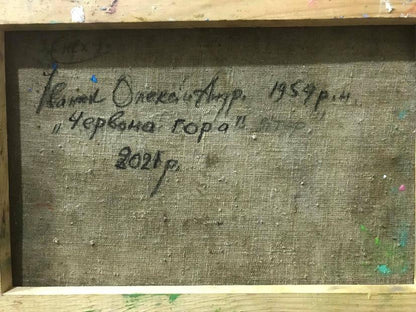 Іванюк Олександр. 1954 р.н.
„Червона гора"
2021 р.